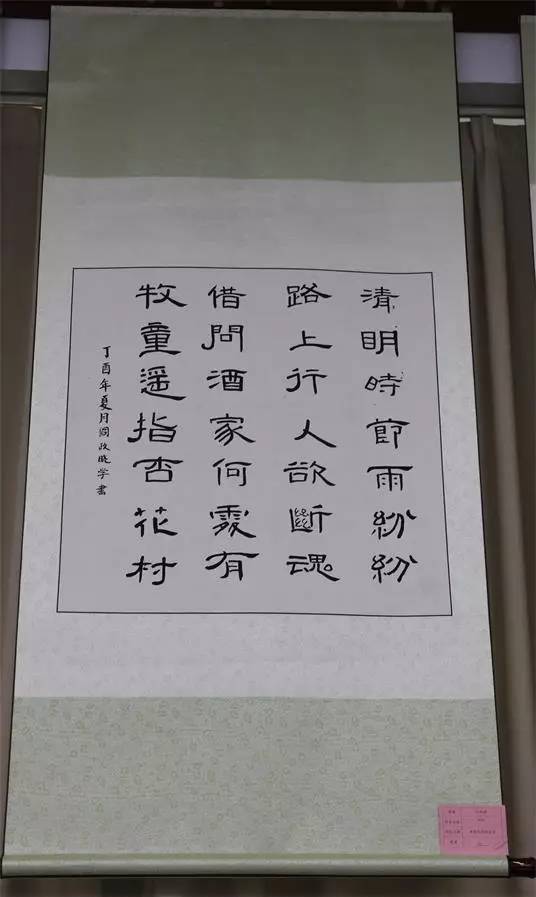 清明時節雨紛紛
路上行人欲斷魂
借問酒家何處有
牧童遥指杏花村
丁酉年夏月閻政曉学書